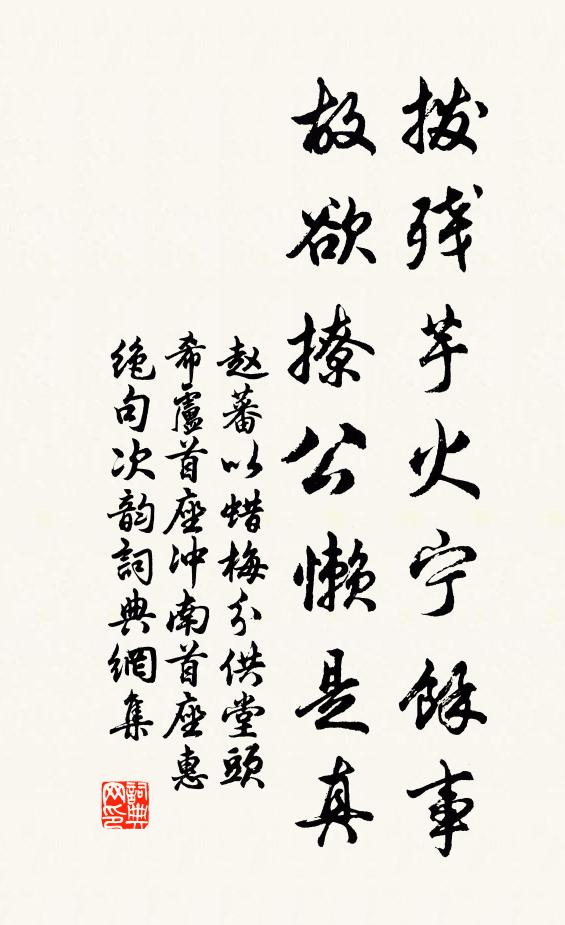 拨残芋火宁馀事
故欲撩公懒是真
赵蕃以蜡梅分供堂頭
希盧首座冲南首座惠
绝句次韵詞典網集
詞典网印